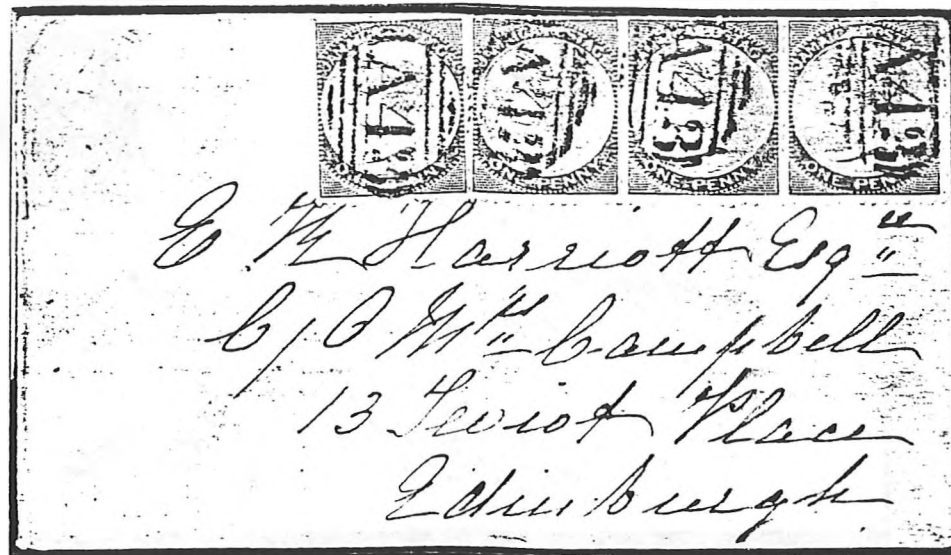 ONE PENNY ONE PENNY ONE PENNY ONE PENNY
E. M. Harriott Esqre
C/O Mrs Campbell
13 Teviot Place
Edinburgh